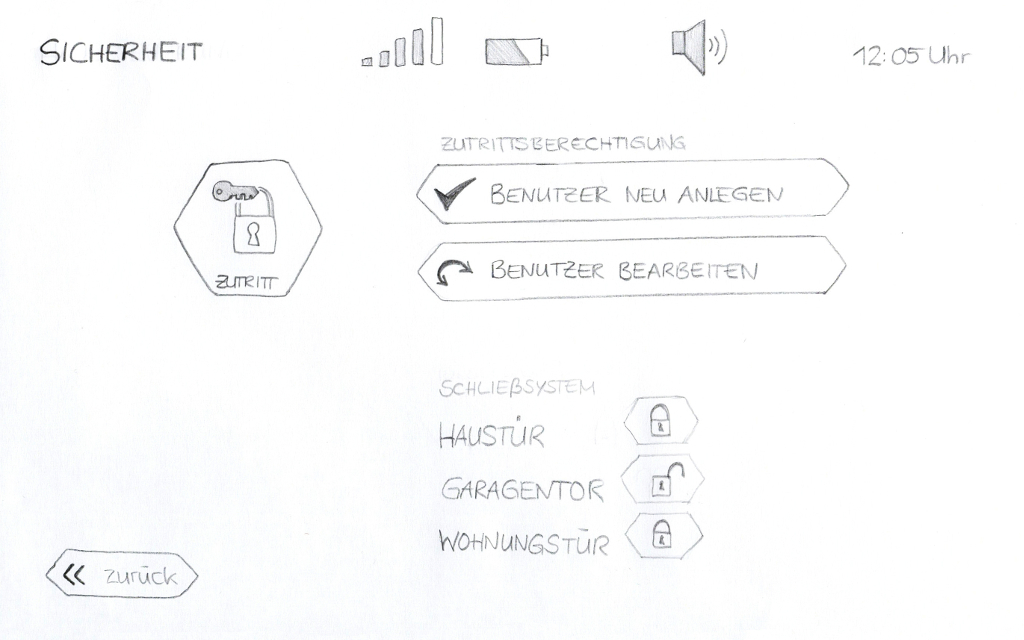 SICHERHEIT
12:05 Uhr
ZUTRITTSBERECHTIGUNG
BENUTZER NEU ANLEGEN
BENUTZER BEARBEITEN
ZUTRITT
SCHLIEßSYSTEM
HAUSTÜR
GARAGENTOR
WOHNUNGSTÜR
zurück